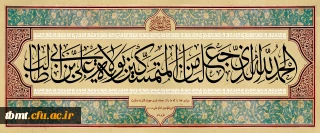 الحمد لله الذي جعلنا من المتمسكين بولاية علي بن ابي طالب
tbmt.cfu.ac.ir